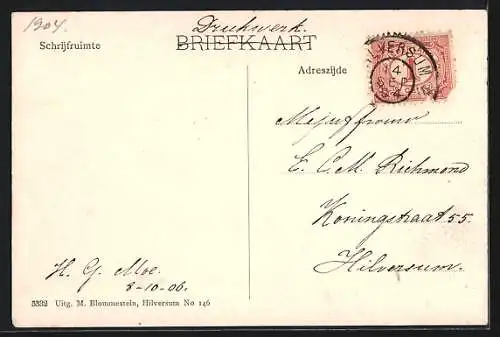 1904.
Drukwerk.
BRIEFKAART
Schrijfruimte
Adreszijde
HILVERSUM
4
Mejuffrouw
E. C. M. Richmond
Koningstraat 55.
Hilversum.
H. G. Moe.
8-10-06.
5332 Uitg. M. Blommestein, Hilversum No 146